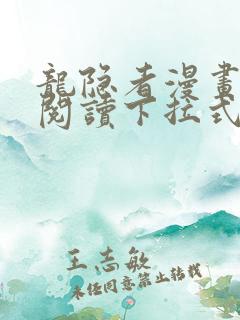 龍隐者漫畫
閱讀下拉式
王志敏
未经同意禁止转载